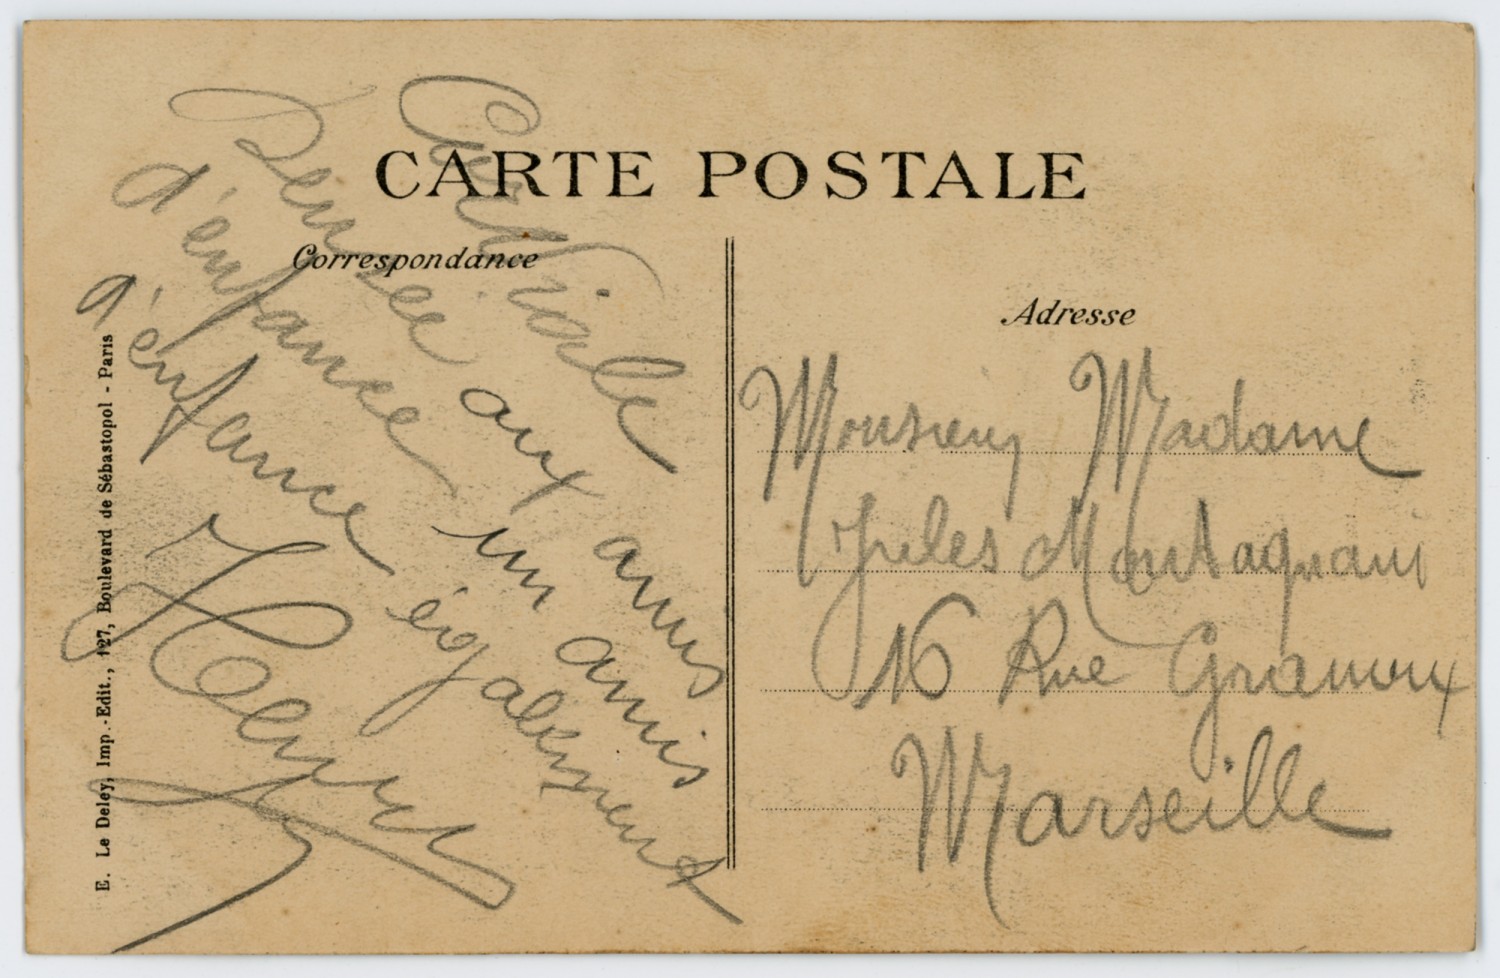 CARTE POSTALE
Correspondance
Adresse
Cordiale
Pensée aux amis
d'enfance un amis
d'enfance également
Henry
Monsieur Madame
Jules Montagnani
16 Rue
Marseille
E. Le Deley, Imp.-Edit., 127, Boulevard de Sébastopol - Paris